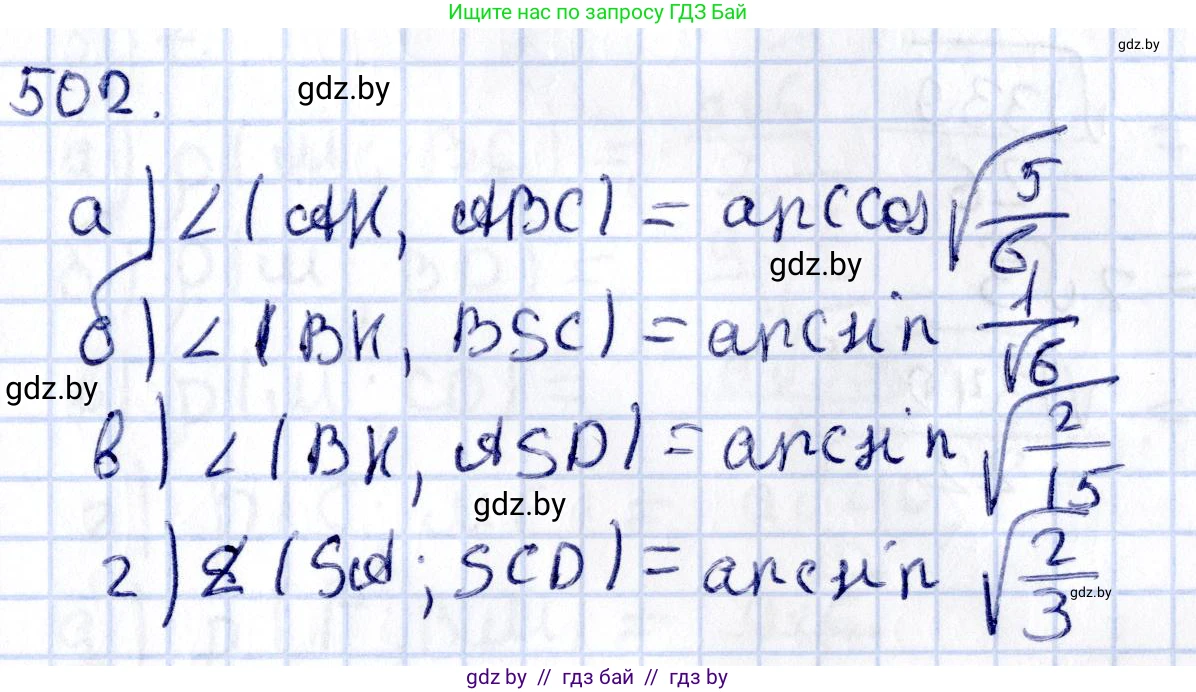 Ищите нас по запросу ГДЗ Бай
gdz.by
502.
gdz.by
а) ∠(AK, ABC) = arccos √(5/6)
gdz.by
б) ∠(BK, BSC) = arcsin 1/√6
gdz.by
в) ∠(BK, ASD) = arcsin √(2/15)
gdz.by
г) ∠(SA; SCD) = arcsin √(2/3)
gdz.by
gdz.by // гдз бай // гдз by